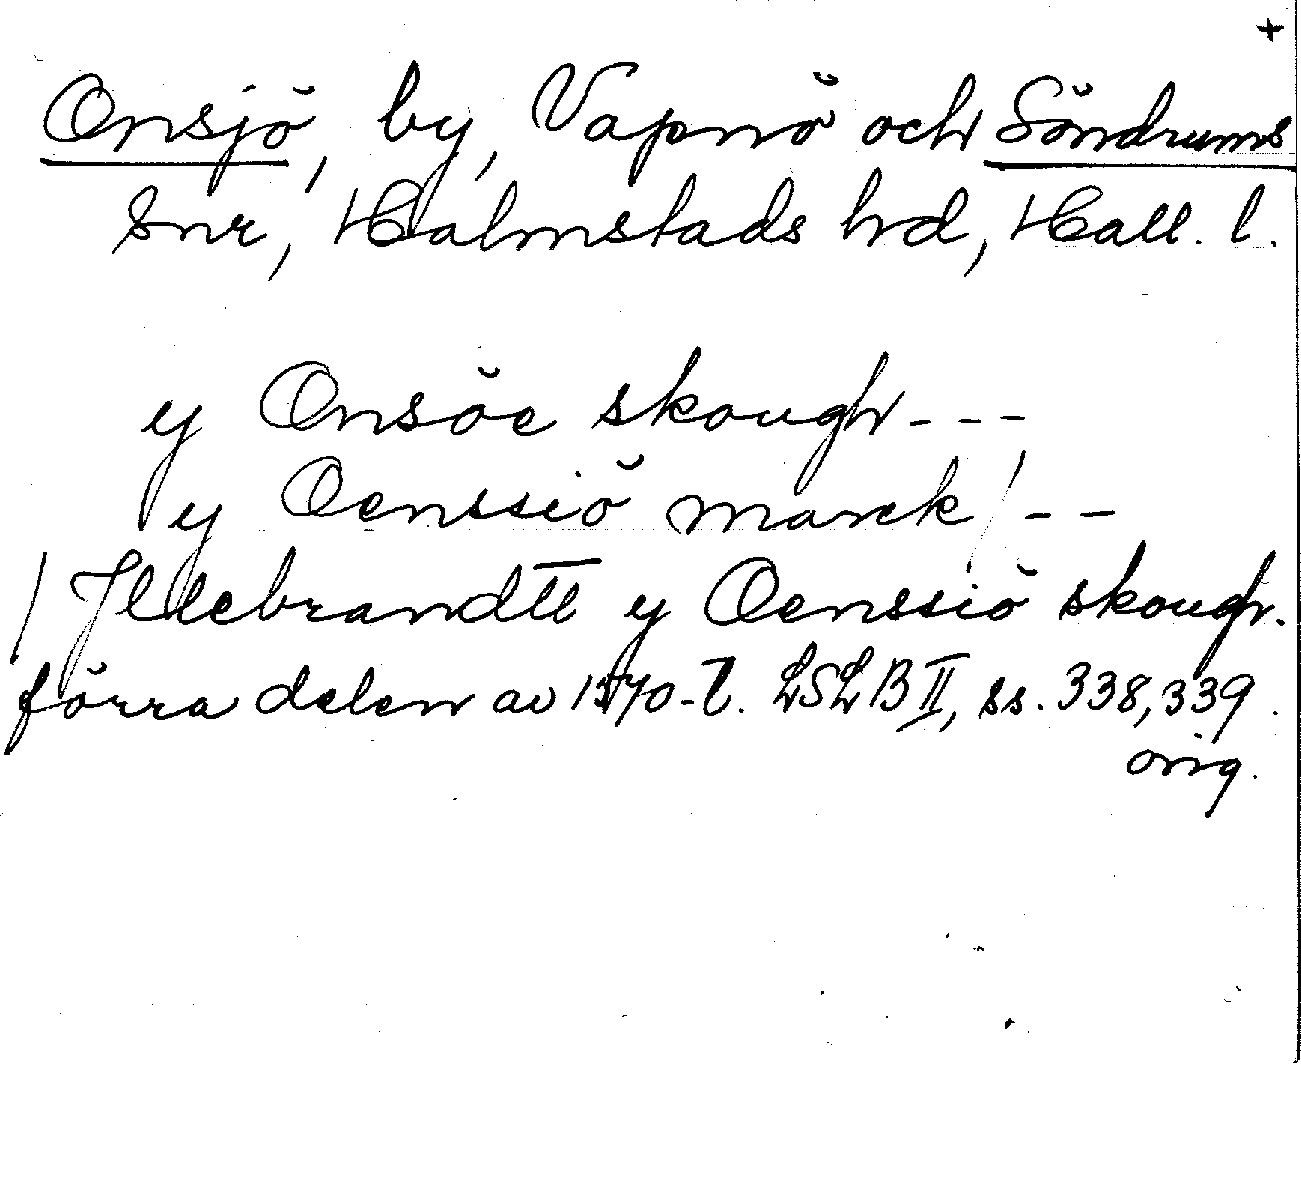 +
Onsjö, by, Vapnö och Söndrums
snr, Halmstads hd, Hall. l.
y Onsöe skough - - -
y Oenssiö marck / - -
/ Jldebrandtt y Oenssiö skough.
förra delen av 1570-t. LSLB II, ss. 338, 339.
orig.